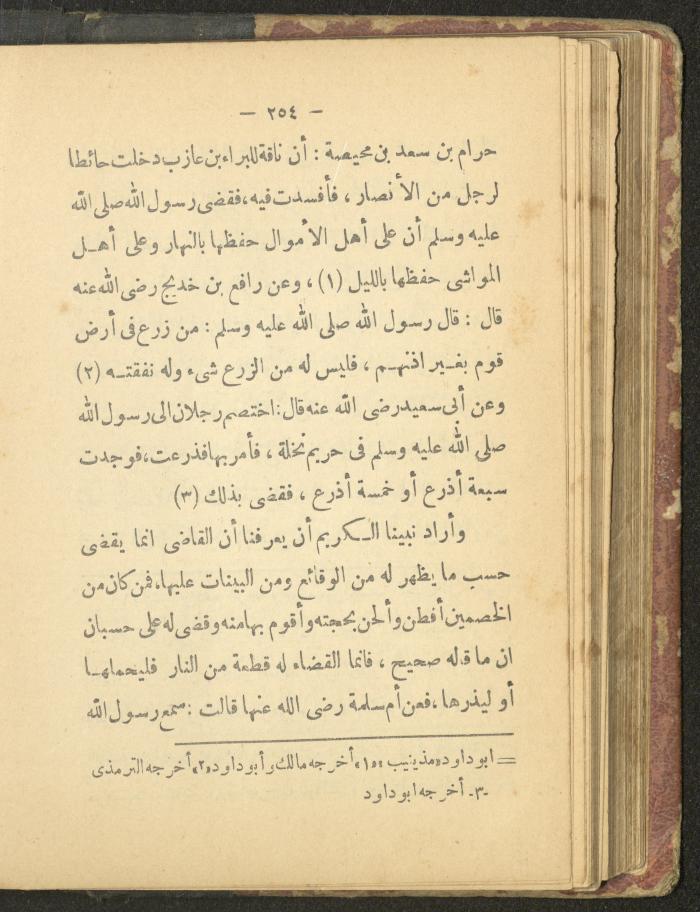 – ٢٥٤ –
حرام بن سعد بن محيصة : أن ناقة للبراء بن عازب دخلت حائطا
لرجل من الأنصار ، فأفسدت فيه، فقضى رسول الله صلى الله
عليه وسلم أن على أهل الأموال حفظها بالنهار وعلى أهل
المواشى حفظها بالليل (١) ، وعن رافع بن خديج رضى الله عنه
قال : قال رسول الله صلى الله عليه وسلم : من زرع فى أرض
قوم بغير اذنهم ، فليس له من الزرع شىء وله نفقته (٢)
وعن أبى سعيد رضى الله عنه قال : اختصم رجلان الى رسول الله
صلى الله عليه وسلم فى حريم نخلة ، فأمر بها فذرعت، فوجدت
سبعة أذرع أو خمسة أذرع ، فقضى بذلك (٣)
وأراد نبينا الكريم أن يعرفنا أن القاضى انما يقضى
حسب ما يظهر له من الوقائع ومن البينات عليها، فمن كان من
الخصمين أفطن وألحن بحجته وأقوم بها منه وقضى له على حسبان
ان ما قاله صحيح ، فانما القضاء له قطعة من النار فليحملها
أو ليذرها ، فعن أم سلمة رضى الله عنها قالت : سمع رسول الله
= ابو داود «مذينيب» «١» أخرجه مالك وأبو داود «٢» أخرجه الترمذى
-٣- أخرجه ابو داود